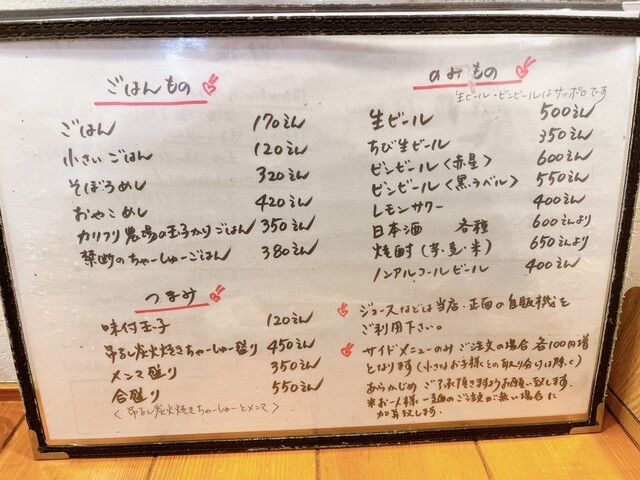 ごはんもの
ごはん 170えん
小さいごはん 120えん
そぼろめし 320えん
おやこめし 420えん
カリフリ農場の玉子かりごはん 350えん
禁断のちゃーしゅーごはん 380えん
つまみ
味付玉子 120えん
吊るし炭火焼きちゃーしゅー盛り 450えん
メンマ盛り 350えん
合盛り 550えん
<吊るし炭火焼きちゃーしゅーとメンマ>
のみもの
生ビール・ビンビールはサッポロです
生ビール 500えん
ちび生ビール 350えん
ビンビール<赤星> 600えん
ビンビール<黒ラベル> 550えん
レモンサワー 400えん
日本酒 各種 600えんより
焼酎(芋・麦・米) 650えんより
ノンアルコールビール 400えん
ジュースなどは当店、正面の自販機を
ご利用下さい。
サイドメニューのみご注文の場合 各100円増
となります(小さなお子様との取り分けは除く)
あらかじめ ご了承頂きますようお願い致します。
※お一人様 一麺のご注文が無い場合に
加算致します。